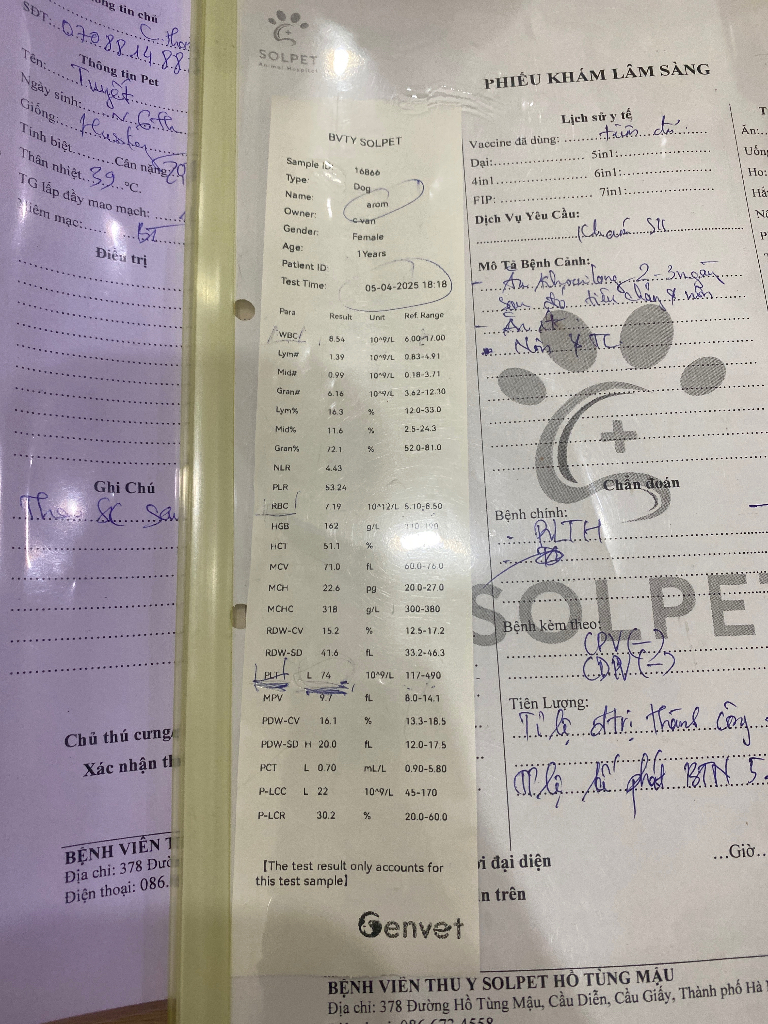 ông tin chủ
SĐT: 070.88.14.88
Thông tin Pet
Tên: Tuyết
Ngày sinh:
Giống: Husky
Tính biệt Cân nặng
Thân nhiệt 39 °C
TG lấp đầy mao mạch:
Niêm mạc: BT
Điều trị
Ghi Chú
Theo
Chủ thú cưng
Xác nhận th
BỆNH VIỆN T
Địa chỉ: 378 Đườ
Điện thoại: 086.
SOLPET
Animal Hospital
BVTY SOLPET
Sample ID: 16866
Type: Dog
Name: arom
Owner: c van
Gender: Female
Age: 1Years
Patient ID
Test Time: 05-04-2025 18:18
Para Result Unit Ref. Range
WBC 8.54 10^9/L 6.00-17.00
Lym# 1.39 10^9/L 0.83-4.91
Mid# 0.99 10^9/L 0.18-3.71
Gran# 6.16 10^9/L 3.62-12.30
Lym% 16.3 % 12.0-33.0
Mid% 11.6 % 2.5-24.3
Gran% 72.1 % 52.0-81.0
NLR 4.43
PLR 53.24
RBC 7.19 10^12/L 5.10-8.50
HGB 162 g/L
HCT 51.1 %
MCV 71.0 fL 60.0-76.0
MCH 22.6 pg 20.0-27.0
MCHC 318 g/L 300-380
RDW-CV 15.2 % 12.5-17.2
RDW-SD 41.6 fL 33.2-46.3
PLT L 74 10^9/L 117-490
MPV 9.7 fL 8.0-14.1
PDW-CV 16.1 % 13.3-18.5
PDW-SD H 20.0 fL 12.0-17.5
PCT L 0.70 mL/L 0.90-5.80
P-LCC L 22 10^9/L 45-170
P-LCR 30.2 % 20.0-60.0
[The test result only accounts for
this test sample]
Genvet
PHIẾU KHÁM LÂM SÀNG
Lịch sử y tế
Vaccine đã dùng: tiêm đủ
Dại: 5in1:
4in1 6in1:
FIP: 7in1:
Dịch Vụ Yêu Cầu:
Khám SK
Mô Tả Bệnh Cảnh:
- Ăn khoai lang 2-3 ngày
sau đó tiêu chảy & nôn
- Ăn ít
Nôn
Chẩn đoán
Bệnh chính:
- RLTH
SOLPE
Bệnh kèm theo:
CPV (-)
CDV (-)
Tiên Lượng:
Tỉ lệ đtrị thành công
Tỉ lệ tái phát
i đại diện
n trên
...Giờ..
BỆNH VIỆN THÚ Y SOLPET HỒ TÙNG MẬU
Địa chỉ: 378 Đường Hồ Tùng Mậu, Cầu Diễn, Cầu Giấy, Thành phố Hà
086.673.4558
Ăn:
Uống
Ho: